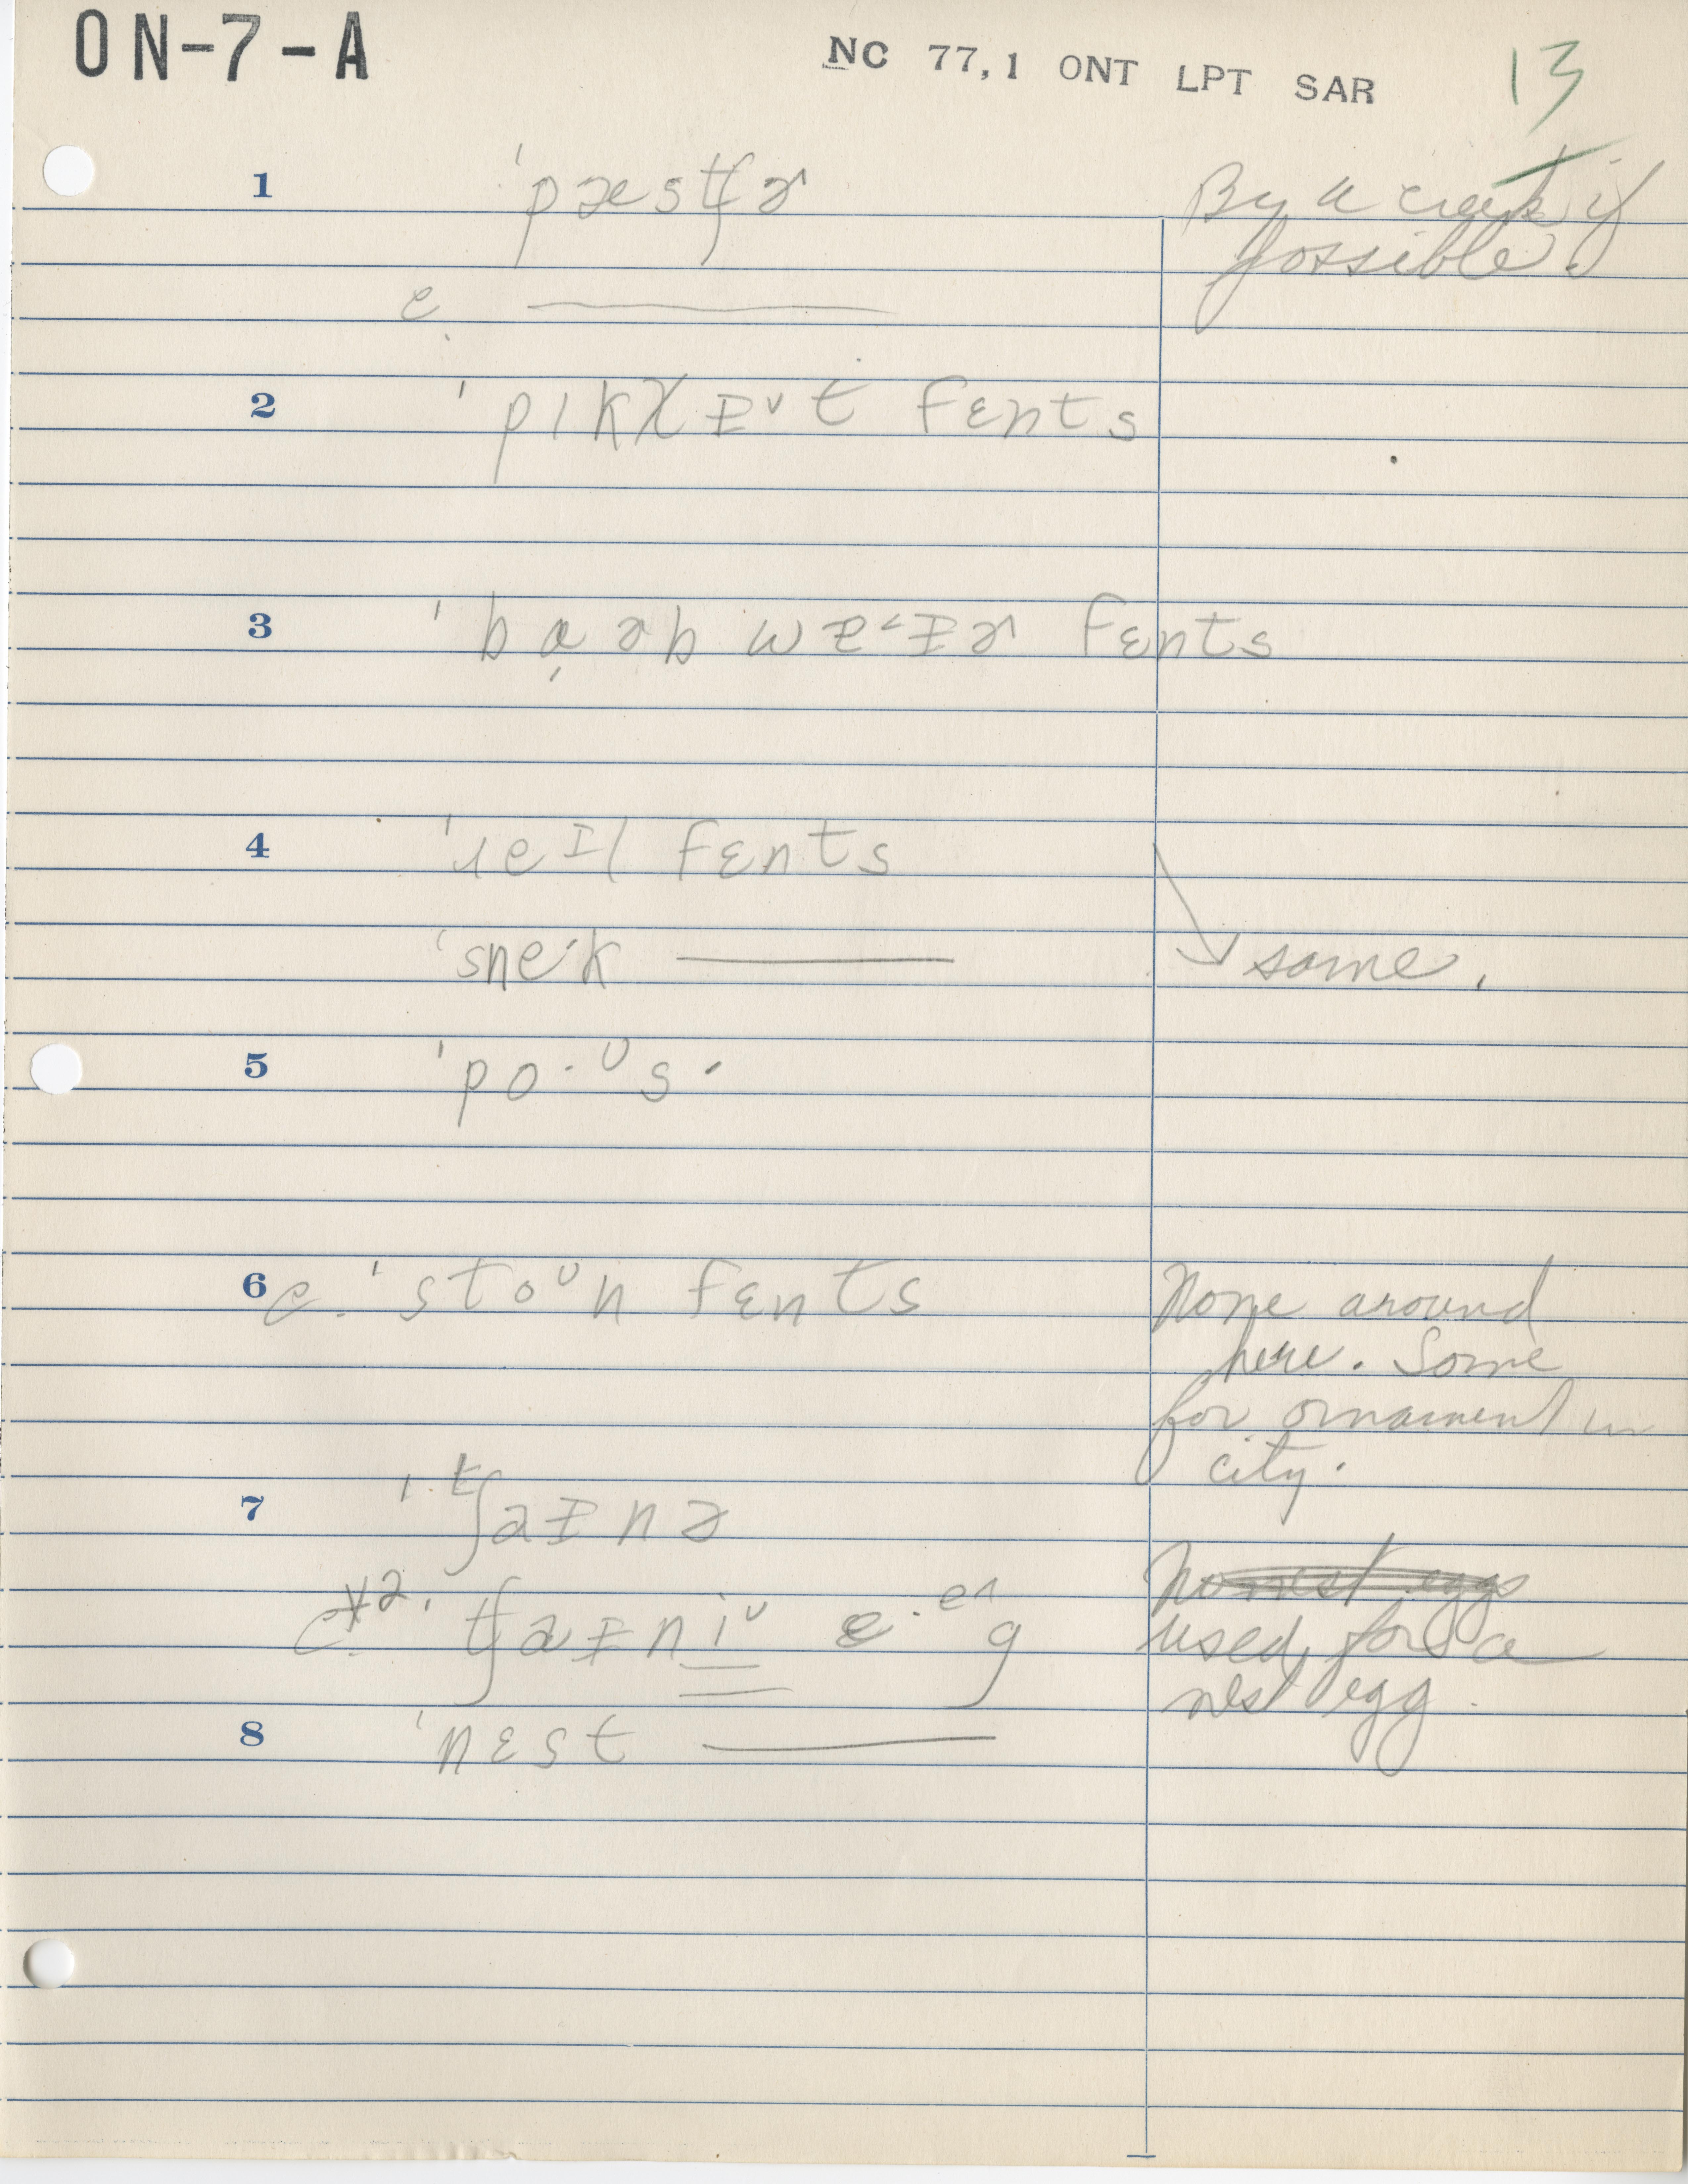 ON-7-A
NC 77,1 ONT LPT SAR 13
1 ˈpæstʃɚ By a creek if
possible.
c. ———
2 ˈpɪkɪ˅t fɛnts
3 ˈbɑɚb waɪɚ fɛnts
4 ˈɹeɪl fɛnts
ˈsneˑk ——— some.
5 ˈpoˑᶷsˑ
6 c. ˈstoᶷn fɛnts None around
here. Some
for ornament in
city.
7 1. tʃaɪnə
c. 2. tʃaɪni˅ eˑg used for a
nest egg.
8 ˈnɛst ———